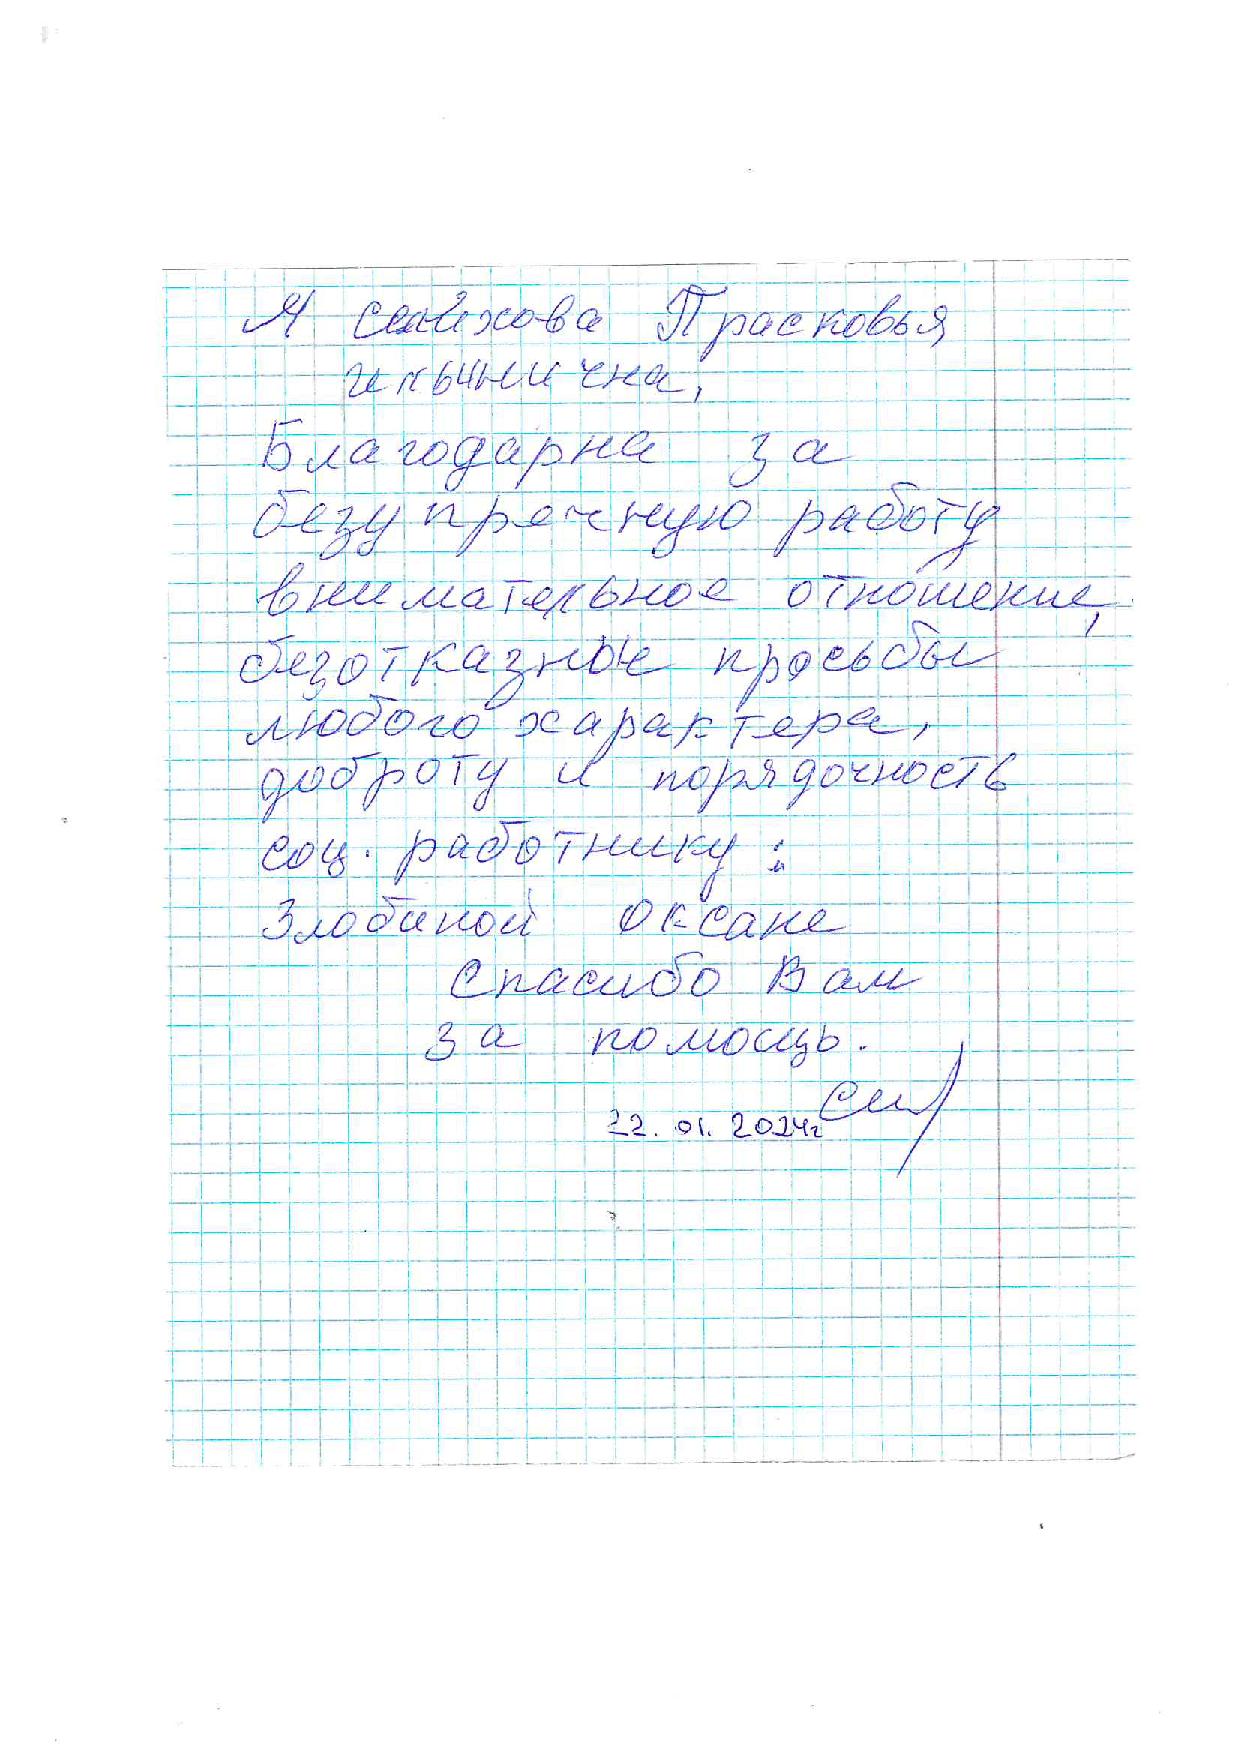 Я Прасковья
Ильинична,
Благодарна за
безупречную работу
внимательное отношение,
безотказное просьбы
любого характера,
доброту и порядочность
соц. работнику:
Злобиной Оксане
Спасибо Вам
за помощь.
22.01.2024г